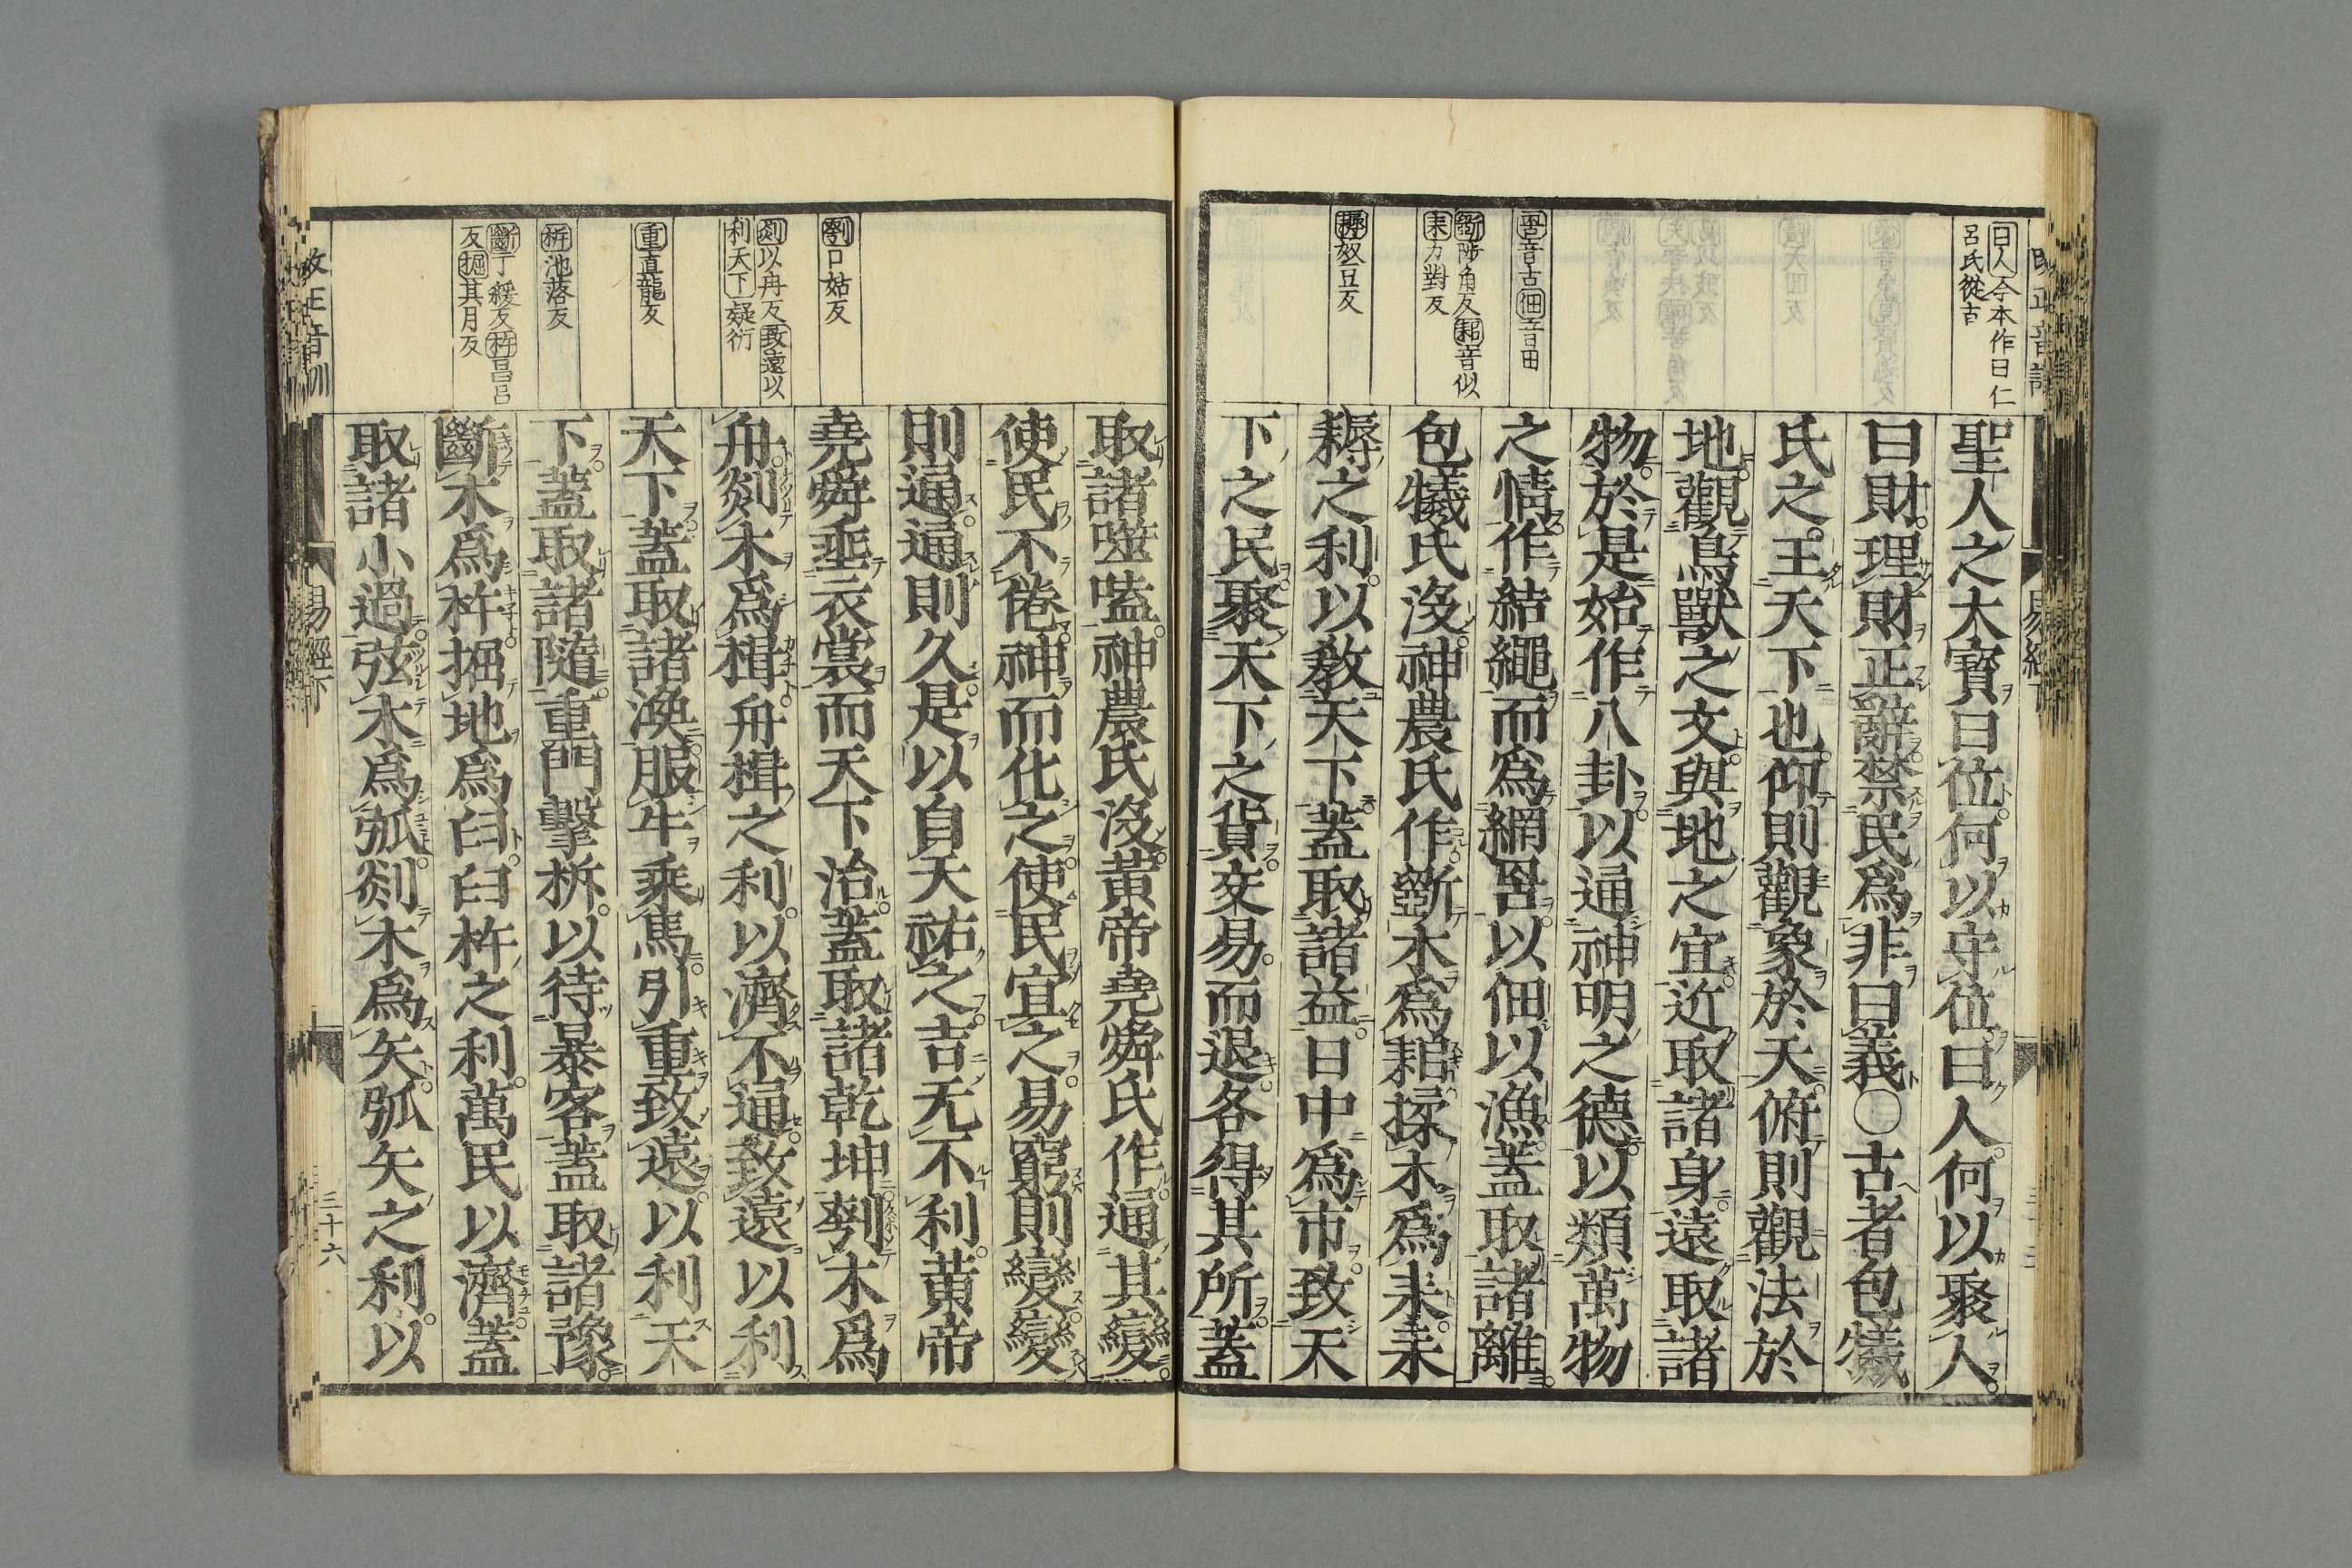 曰人今本作曰仁
呂氏從古
罟音古佃音田
斲陟角反耜音似
耒力對反
耨奴豆反
聖人之大寳曰位何以守位曰人何以聚人
曰財理財正辭禁民爲非曰義○古者包犧
氏之王天下也仰則觀象於天俯則觀法於
地觀鳥獸之文與地之宜近取諸身遠取諸
物於是始作八卦以通神明之德以類萬物
之情作結繩而爲網罟以佃以漁蓋取諸離
包犧氏沒神農氏作斲木爲耜揉木爲耒耒
耨之利以敎天下蓋取諸益日中爲市致天
下之民聚天下之貨交易而退各得其所蓋
刳口姑反
剡以冉反致遠以
利天下疑衍
重直龍反
柝池落反
斷丁緩反杵昌呂
反掘其月反
取諸噬嗑神農氏沒黃帝堯舜氏作通其變
使民不倦神而化之使民宜之易窮則變變
則通通則久是以自天祐之吉无不利黃帝
堯舜垂衣裳而天下治蓋取諸乾坤刳木爲
舟剡木爲楫舟楫之利以濟不通致遠以利
天下蓋取諸渙服牛乘馬引重致遠以利天
下蓋取諸隨重門擊柝以待暴客蓋取諸豫
斷木爲杵掘地爲臼臼杵之利萬民以濟蓋
取諸小過弦木爲弧剡木爲矢弧矢之利以
改正音訓
易經下
三十六